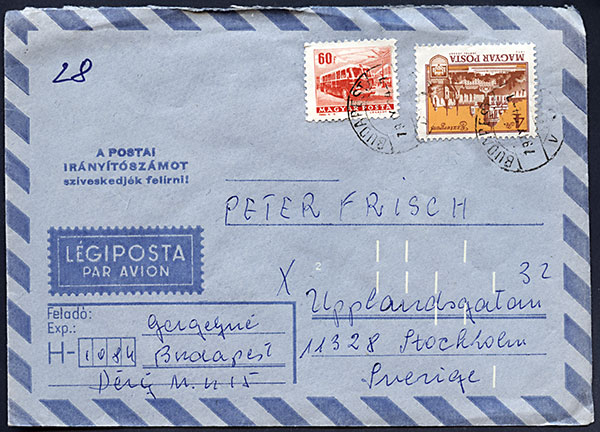 28
60f
MAGYAR POSTA
MAGYAR POSTA
4 Ft
Esztergom
BUDAPEST
BUDAPEST
A POSTAI
IRÁNYÍTÓSZÁMOT
szíveskedjék felírni!
PETER FRISCH
LÉGIPOSTA
PAR AVION
X
2
32
Upplandsgatan
11328 Stockholm
Sverige
Feladó:
Exp.:
Gergelyné
H-1084
Budapest
Déri M. u 15